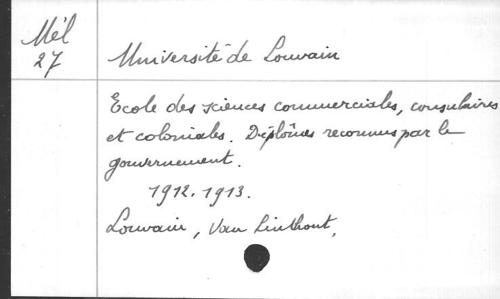 Mél
27
Université de Louvain
Ecole des sciences commerciales, consulaires
et coloniales. Diplômes reconnus par le
gouvernement.
1912-1913.
Louvain, Van Linthout,